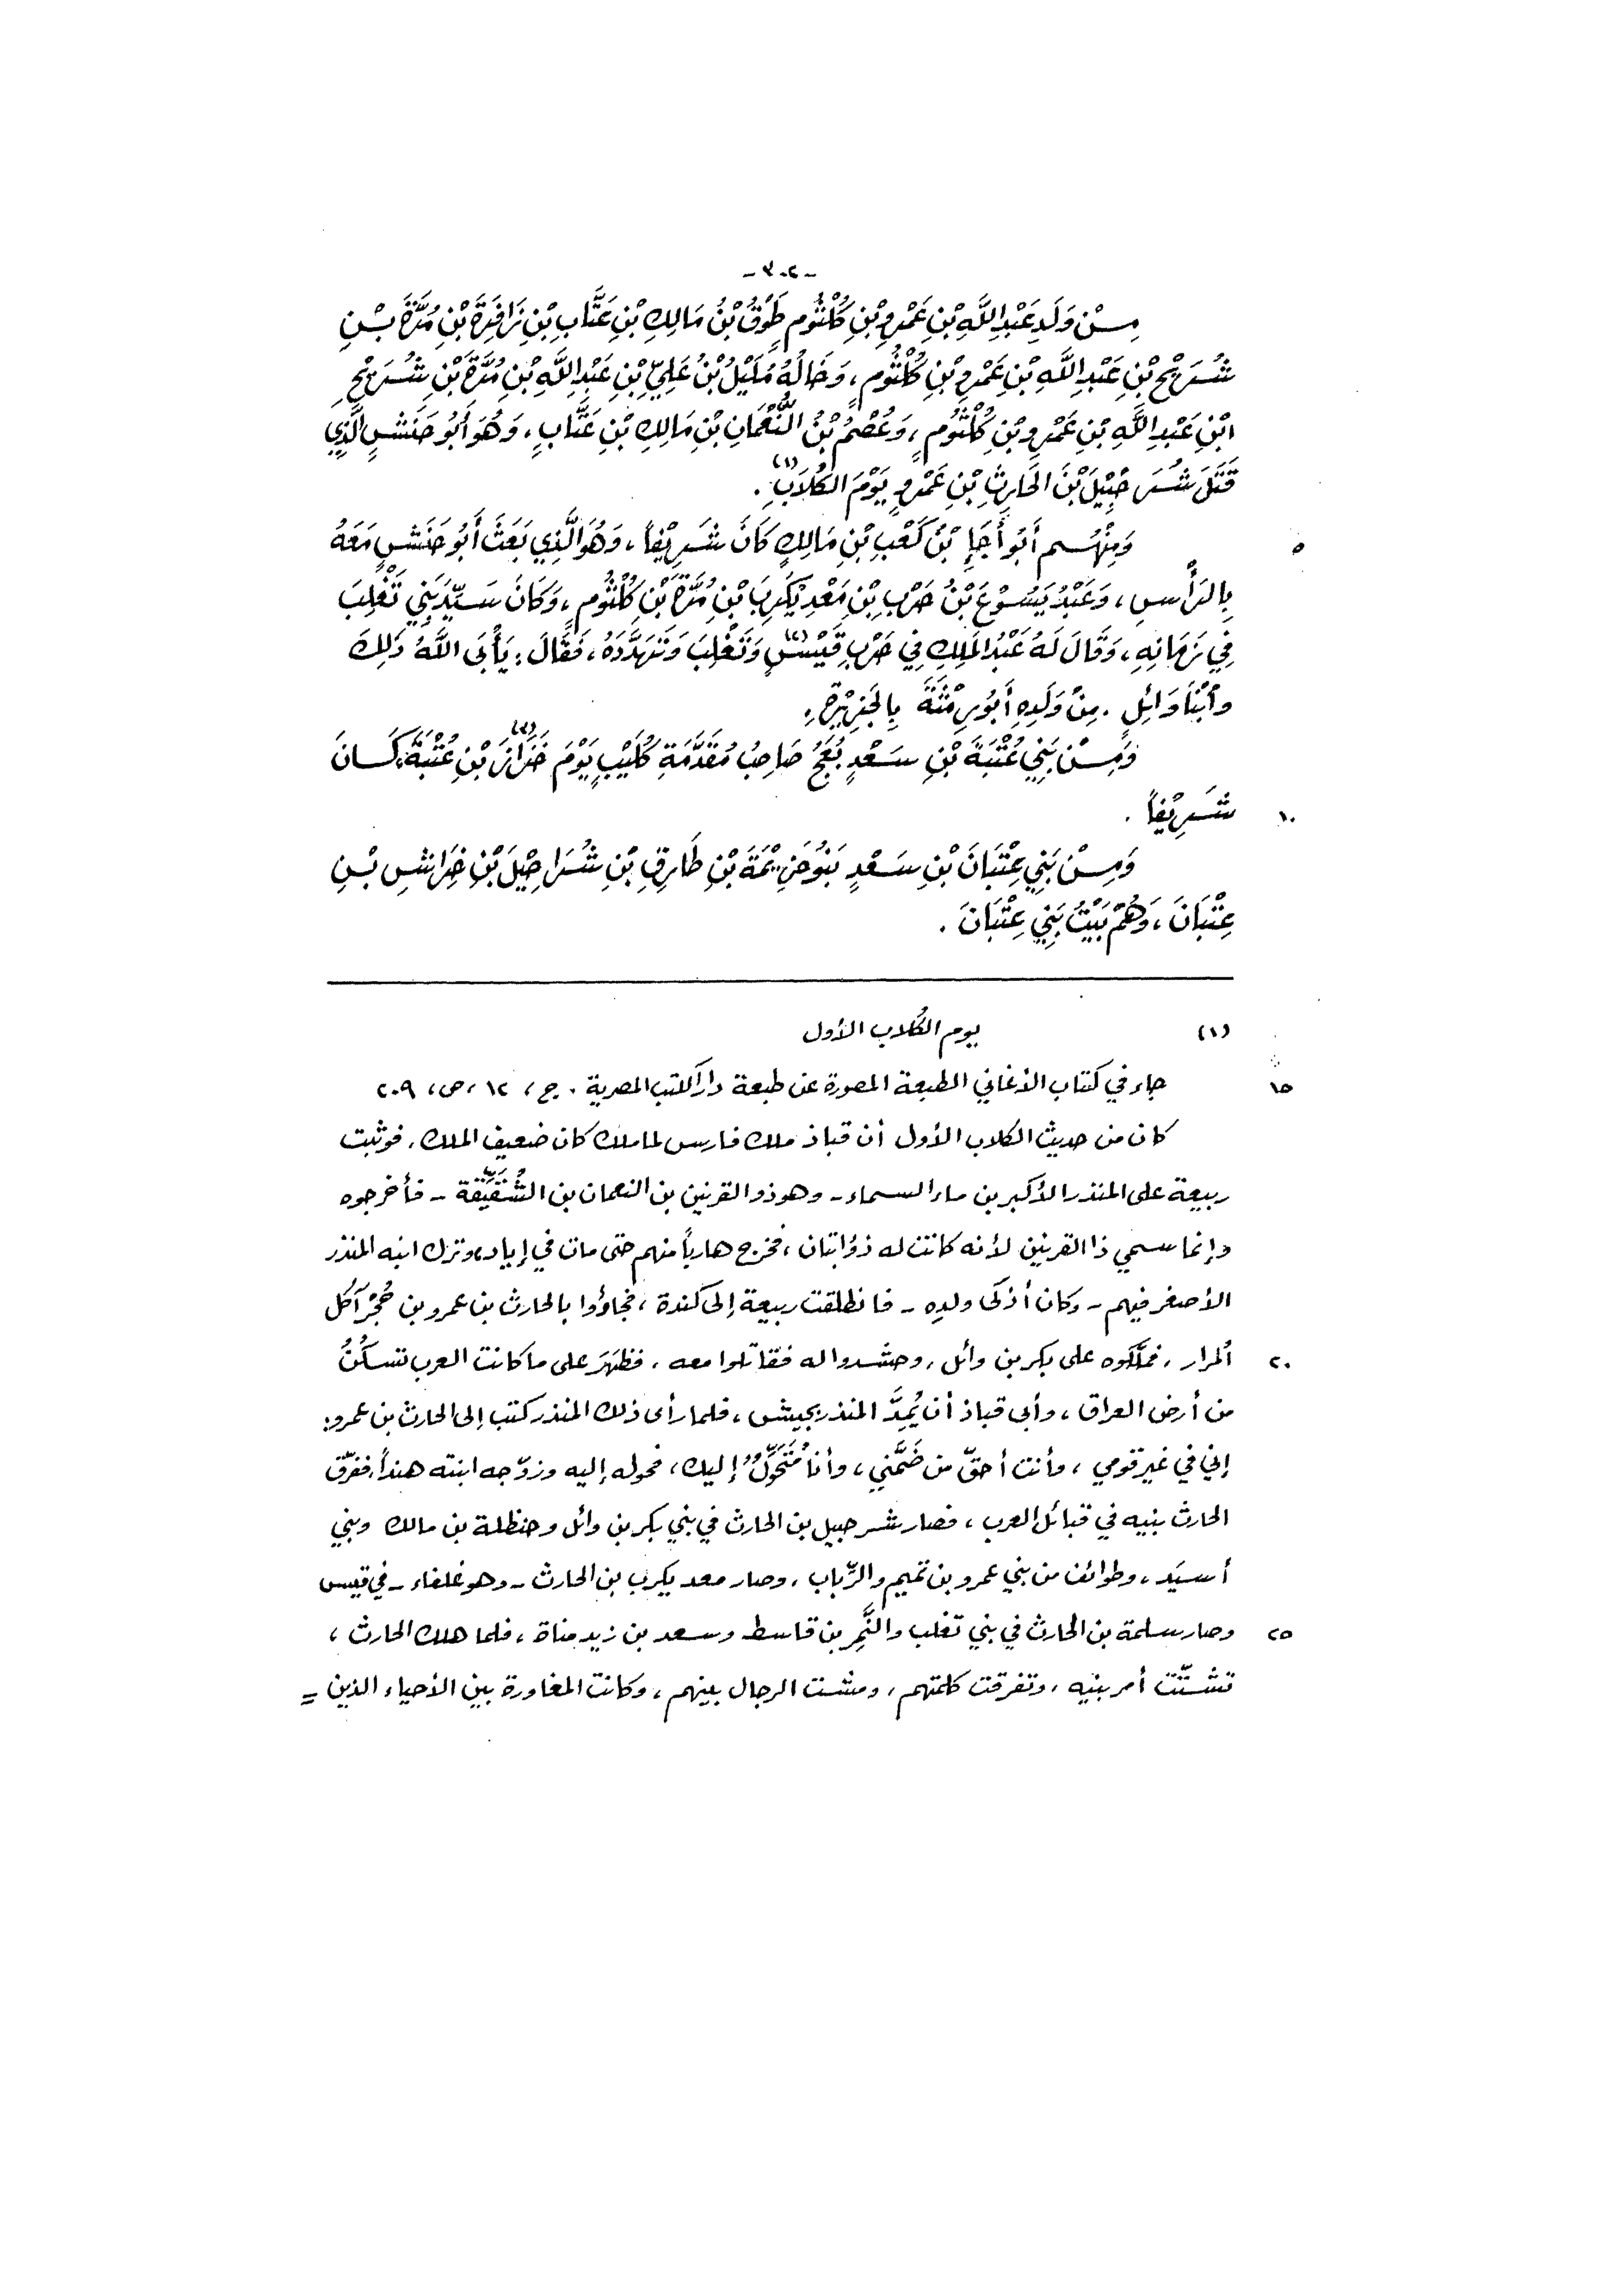 -٣٠٢-
مِنْ وَلَدِ عَبْدِ اللَّهِ بْنِ عَمْرِو بْنِ كُلْثُومٍ طَوْقُ بْنُ مَالِكِ بْنِ عَتَّابِ بْنِ زَافِرَةَ بْنِ مُرَّةَ بْنِ
شُرَيْحِ بْنِ عَبْدِ اللَّهِ بْنِ عَمْرِو بْنِ كُلْثُومٍ، وَخَالُهُ مُلَيْلُ بْنُ عَلِيِّ بْنِ عَبْدِ اللَّهِ بْنِ مُرَّةَ بْنِ شُرَيْحِ
ابْنِ عَبْدِ اللَّهِ بْنِ عَمْرِو بْنِ كُلْثُومٍ، وَعُصْمُ بْنُ النُّعْمَانِ بْنِ مَالِكِ بْنِ عَتَّابٍ، وَهُوَ أَبُو حَنَشٍ الَّذِي
قَتَلَ شُرَحْبِيْلَ بْنَ الحَارِثِ بْنِ عَمْرٍو يَوْمَ الكُلَابِ (١).
وَمِنْهُم أَبُو أَجَإِ بْنُ كَعْبِ بْنِ مَالِكٍ كَانَ شَرِيْفاً، وَهُوَ الَّذِي بَعَثَ أَبُو حَنَشٍ مَعَهُ ٥
بِالرَأْسِ، وَعَبْدُ يَسُوْعَ بْنُ حَرْبِ بْنِ مَعْدِ يْكَرِبَ بْنِ مُرَّةَ بْنِ كُلْثُومٍ، وَكَانَ سَيِّدَ بَنِي تَغْلِبَ
فِي زَمَانِهِ، وَقَالَ لَهُ عَبْدُ المَلِكِ فِي حَرْبِ قَيْسٍ (٢) وَتَغْلِبَ وَتَهَدَّدَهُ، فَقَالَ: يَأْبَى اللَّهُ ذَلِكَ
وابْنَا وَائِلٍ. مِنْ وَلَدِهِ أَبُو رِمْثَةَ بِالجَزِيْرَةِ.
وَمِنْ بَنِي عُتْبَةَ بْنِ سَعْدٍ بُعَجُ صَاحِبُ مُقَدَّمَةِ كُلَيْبٍ يَوْمَ خَزَازَ (٣) بْنِ عُتْبَةَ، كَانَ
شَرِيْفاً. ١٠
وَمِنْ بَنِي عِتْبَانَ بْنِ سَعْدٍ بَنُو خُزَيْمَةَ بْنِ طَارِقِ بْنِ شُرَاحِيْلَ بْنِ خِرَاشِ بْنِ
عِتْبَانَ، وَهُمْ بَيْتُ بَنِي عِتْبَانَ.
(١) يوم الكُلاب الأول
جاء في كتاب الأغاني الطبعة المصورة عن طبعة دار الكتب المصرية. ج، ١٢، ص، ٢٠٩ ١٥
كان من حديث الكلاب الأول أن قباذ ملك فارس لما ملك كان ضعيف الملك، فوثبت
ربيعة على المنذر الأكبر بن ماء السماء - وهو ذو القرنين بن النعمان بن الشُّقَيْقة - فأخرجوه
وإنما سمي ذا القرنين لأنه كانت له ذؤابتان، فخرج هارباً منهم حتى مات في إياد، وترك ابنه المنذر
الأصغر فيهم - وكان أذكى ولدِه - فانطلقت ربيعة إلى كندة، فجاؤوا بالحارث بن عمرو بن حُجْر آكل
المُرار، فملَّكوه على بكر بن وائل، وحشدوا له فقاتلوا معه، فظهَرَ على ما كانت العرب تسكُنُ ٢٠
من أرض العراق، وأبى قباذ أن يُمِدَّ المنذر بجيش، فلما رأى ذلك المنذر كتب إلى الحارث بن عمرو:
إني في غير قومي، وأنت أحقّ من ضَمَّني، وأنا مُتَحَوِّلٌ إليك، فحوله إليه وزوّجه ابنته هنداً، ففرّق
الحارث بنيه في قبائل العرب، فصار شرحبيل بن الحارث في بني بكر بن وائل وحنظلة بن مالك وبني
أسيَد، وطوائف من بني عمرو بن تميم والرِّباب، وصار معد يكرب بن الحارث - وهو غلفاء - في قيس
وصار سلمة بن الحارث في بني تغلب والنَّمِر بن قاسط وسعد بن زيد مناة، فلما هلك الحارث، ٢٥
تشتّت أمر بنيه، وتفرقت كلمتهم، ومشت الرجال بينهم، وكانت المغاورة بين الأحياء الذين =